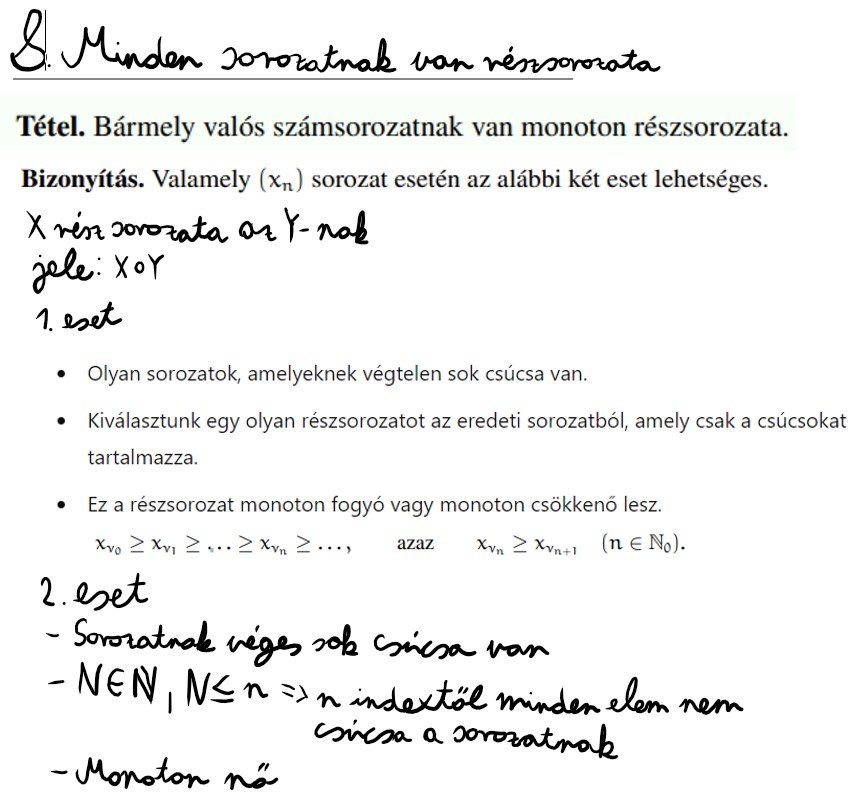 8. Minden sorozatnak van részsorozata
Tétel. Bármely valós számsorozatnak van monoton részsorozata.
Bizonyítás. Valamely (xₙ) sorozat esetén az alábbi két eset lehetséges.
X részsorozata az Y-nak
jele: X∘Y
1. eset
• Olyan sorozatok, amelyeknek végtelen sok csúcsa van.
• Kiválasztunk egy olyan részsorozatot az eredeti sorozatból, amely csak a csúcsokat
tartalmazza.
• Ez a részsorozat monoton fogyó vagy monoton csökkenő lesz.
x_{ν₀} ≥ x_{ν₁} ≥ ... ≥ x_{νₙ} ≥ ..., azaz x_{νₙ} ≥ x_{νₙ₊₁} (n ∈ ℕ₀).
2. eset
- Sorozatnak véges sok csúcsa van
- N∈ℕ, N≤n => n indextől minden elem nem
csúcsa a sorozatnak
- Monoton nő